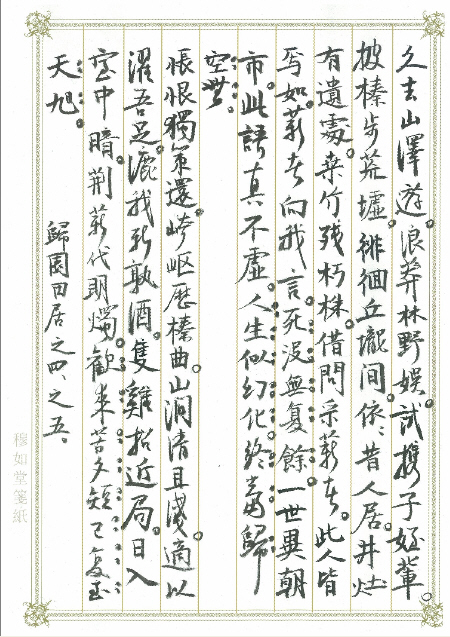 久去山澤遊。浪莽林野娛。試携子姪輩。
披榛步荒墟。徘徊丘壠間。依依昔人居。井灶
有遺處。桑竹殘朽株。借問采薪者。此人皆
焉如。薪者向我言。死沒無复餘。一世異朝
市。此語真不虛。人生似幻化。終當歸
空無。
悵恨獨策還。崎嶇歷榛曲。山澗清且淺。適以
濯吾足。漉我新孰酒。隻雞招近局。日入
室中暗。荆薪代明燭。歡來苦夕短。已复至
天旭。
歸園田居之四、之五、
穆如堂箋紙